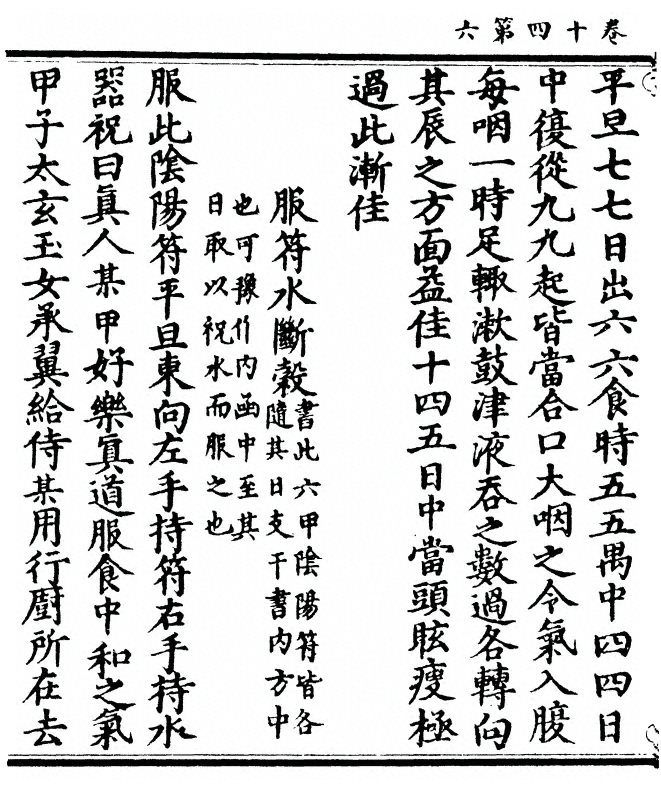 卷十四第六
平旦七七日出六六食時五五禺中四四日
中復從九九起皆當合口大咽之令氣入腹
每咽一時足輙漱鼓津液吞之數過各轉向
其辰之方面益佳十四五日中當頭眩瘦極
過此漸佳
服符水斷穀
書此六甲陰陽符皆各
隨其日支干書内方中
也可豫作内函中至其
日取以祝水而服之也
服此陰陽符平旦東向左手持符右手持水
器祝曰真人某甲好樂真道服食中和之氣
甲子太玄玉女承翼給侍某用行厨所在去